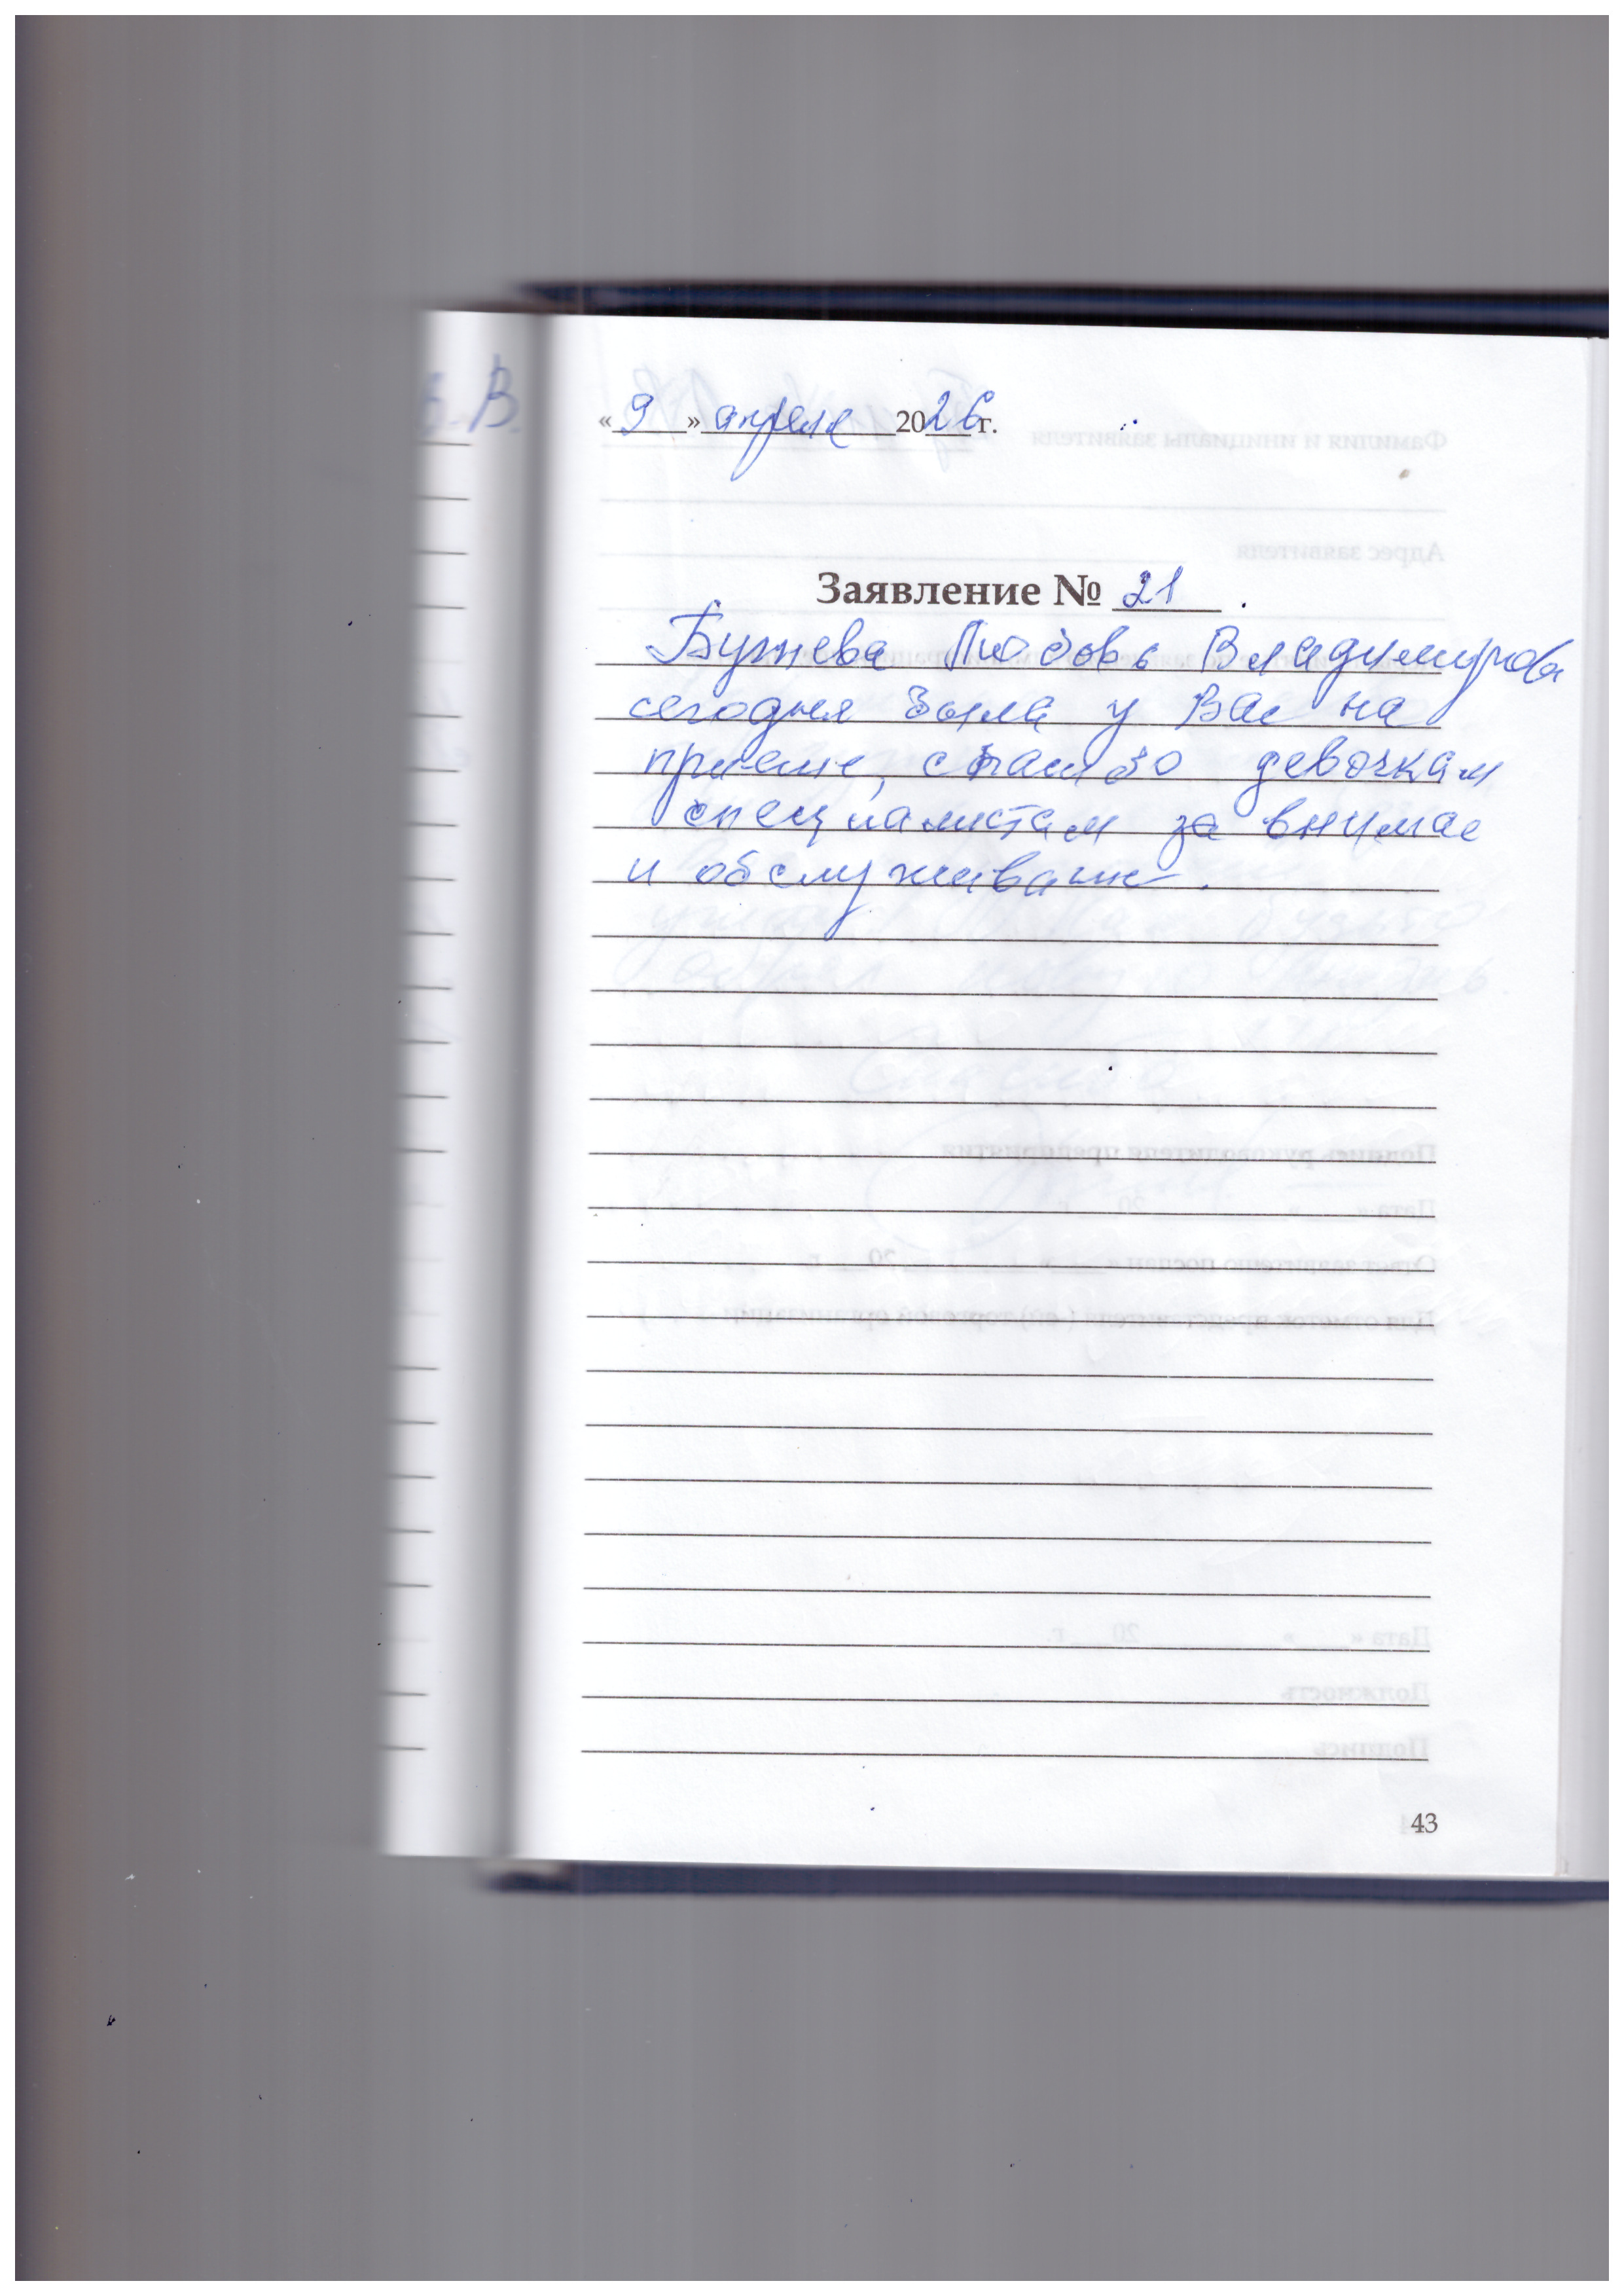 « 9 » апреля 2026 г.
Заявление № 21 .
Бужнева Любовь Владимировна
сегодня была у Вас на
приеме, спасибо девочкам
специалистам за внимае
и обслуживание.
43